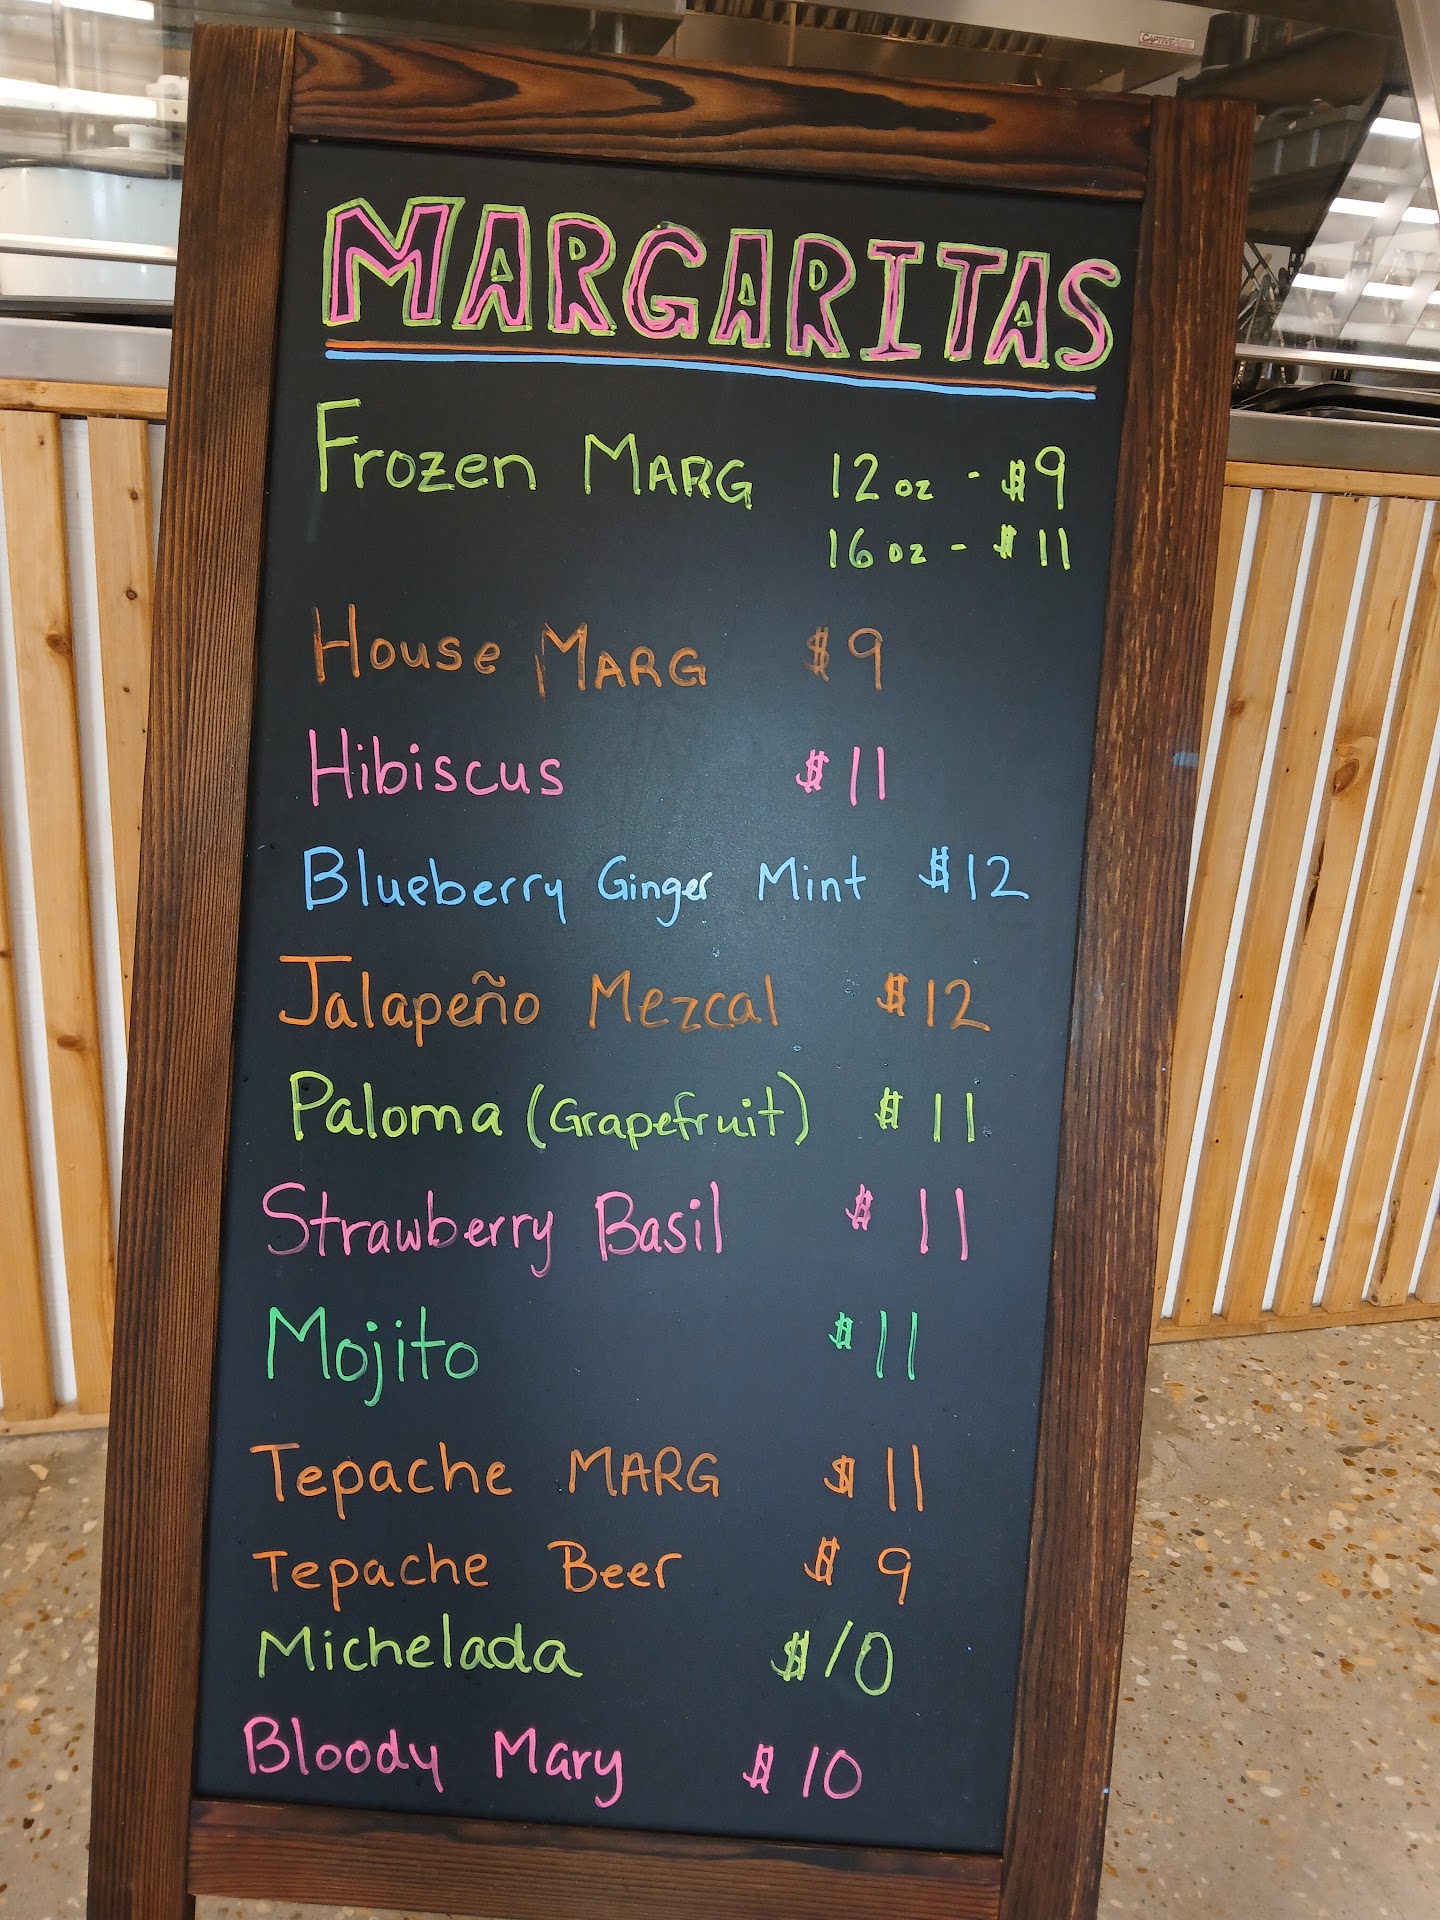 CAPTIVEAIRE
MARGARITAS
Frozen MARG 12 oz - $9
16 oz - $11
House MARG $9
Hibiscus $11
Blueberry Ginger Mint $12
Jalapeño Mezcal $12
Paloma (Grapefruit) $11
Strawberry Basil $11
Mojito $11
Tepache MARG $11
Tepache Beer $9
Michelada $10
Bloody Mary $10